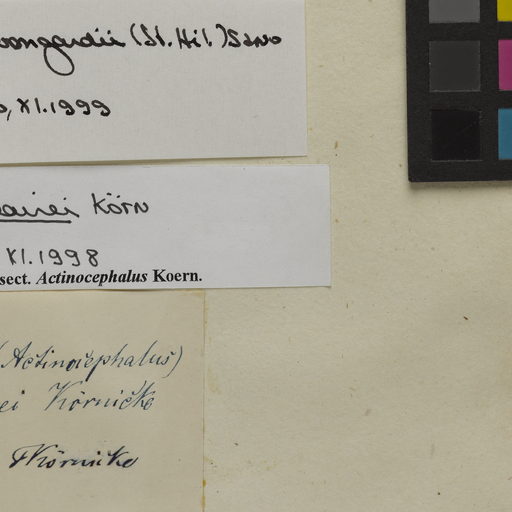 bongardii (St. Hil.) Sano
, XI.1999
Körn
XI.1998
sect. Actinocephalus Koern.
(Actinocephalus)
ei Körnicke
FKörnicke